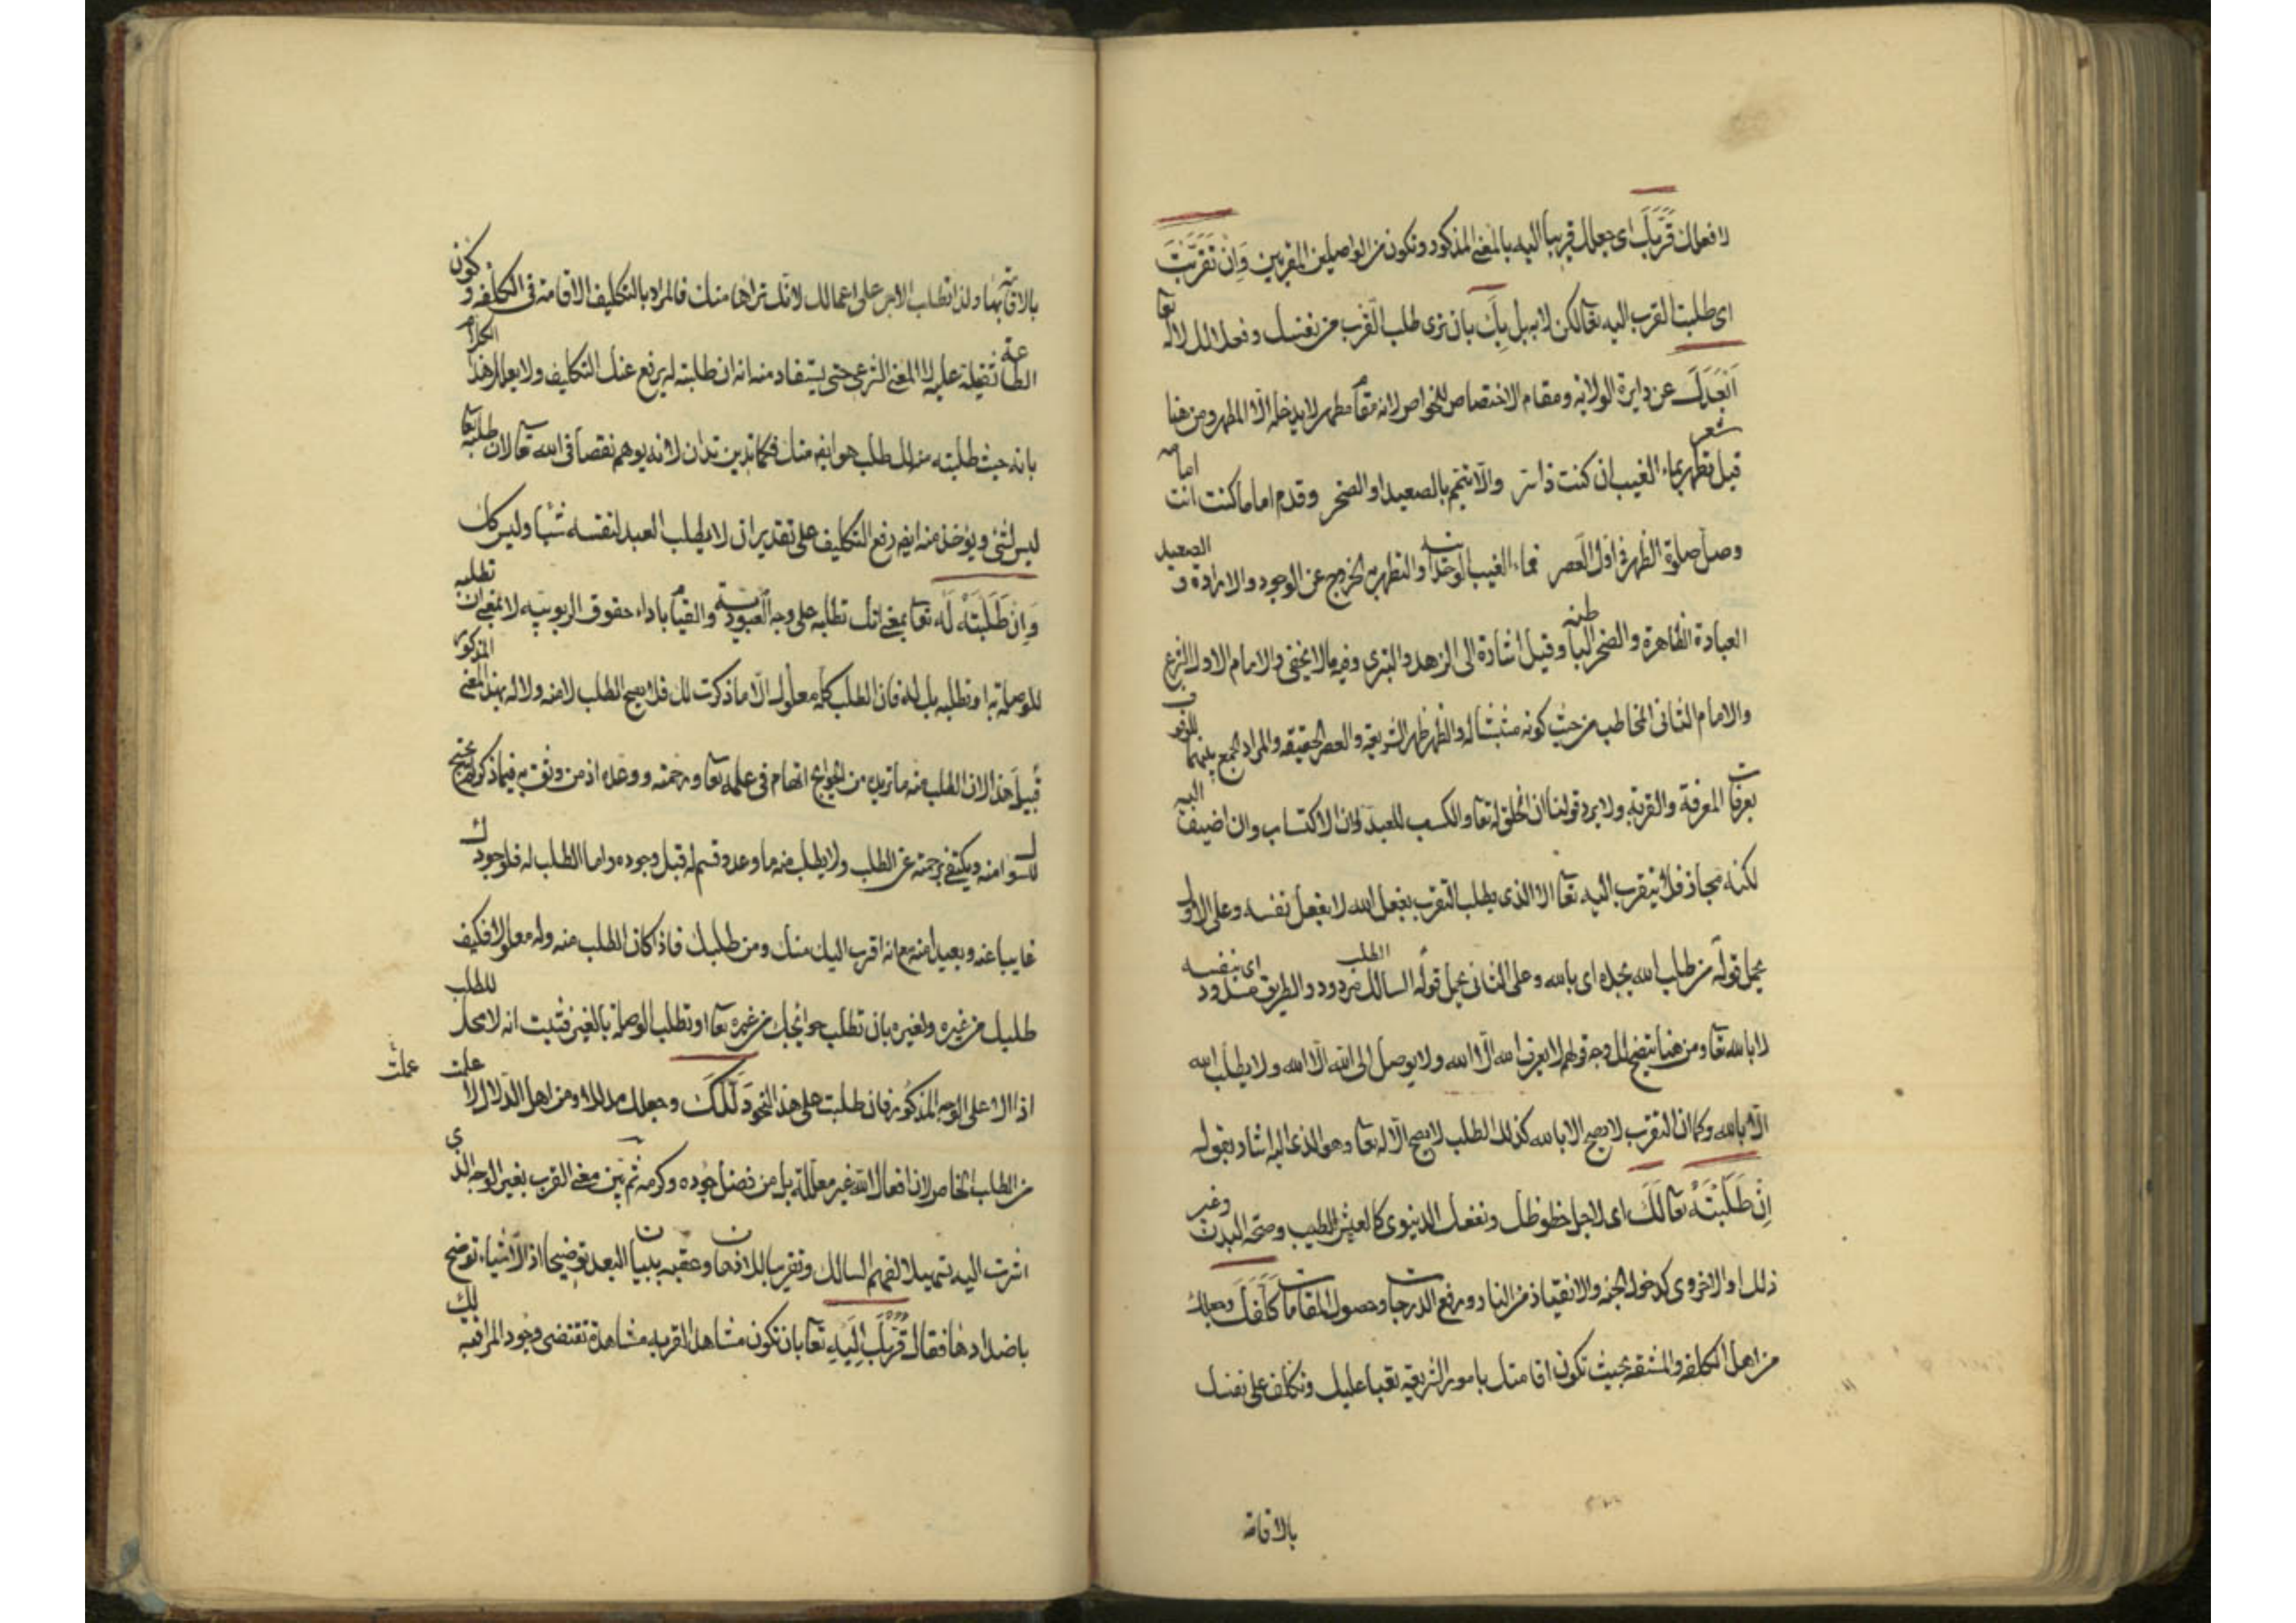 لا فعالك قَرَّبَكَ اى جعلك قريبا اليه بالمعنى المذكور وتكون من الواصلين المقربين وَاِنْ تَقَرَّبْتَ
اى طلبت القرب اليه تعا لكن لا به بل بِكَ بان ترى طلب القرب من نفسك وفعلك لا له تعا
اَبْعَدَكَ عن دايرة الولاية ومقام الاختصاص للخواص لانه مقام مطهر لا يدخله الا المطهر ومن هنا
قيل شعر تطهر بماء الغيب ان كنت ذا سر والا تيمم بالصعيد او الصخر وقدم اماما كنت انت امامه
وصل صلوة الظهر فى اول العصر فماء الغيب التوحيد والتطهر به الخروج عن الوجود والارادة و الصعيد
العبادة الظاهرة والصخر الباطنه وقيل اشارة الى الزهد والتبرى وفيه ما لا يخفى والامام الاول الشرع
والامام الثانى المخاطب من حيث كونه مثبتا له والظهر ظهر الشريعة والعصر الحقيقه والمراد الجمع بينهما للوقوف
بعرفات المعرفة والقربة ولا يرد قولنا ان الخلق له تعا والكسب للعبد لان الاكتساب وان اضيف اليه
لكنه مجاز فلا يتقرب اليه تعا الا الذى يطلب التقرب بفعل الله لا بفعل نفسه وعلى الاول
يحمل قوله من طلب الله يجده اى بالله وعلى الثانى يحمل قوله السالك مردود والطريق مسدود الطلب اى بنفسه
لا بالله تعا ومن هنا يتضح لك وجه قولهم لا يعرف الله الا الله ولا يوصل الى الله الا الله ولا يطلب الله
الا بالله وكما ان التقرب لا يصح الا بالله كذلك الطلب لا يصح الا له تعا وهو الذى اليه اشار بقوله
اِنْ طَلَبْتَهُ تعا لَكَ اى لاجل حظوظك ونفعك الدنيوى كالعيش الطيب وصحة البدن وغير
ذلك او الاخروى كدخول الجنة والانقياذ من النار ورفع الدرجات وحصول المقامات كَلَّفَكَ وجعلك
من اهل الكلفه والمشقه بحيث تكون اقامتك بامور الشريعة تعبا عليك وتكلف على نفسك
بالاقامة
بالاقامة بها ولذا تطلب الاجر على اعمالك لانك تراها منك فالمراد بالتكليف الاقامة فى الكلفه و كون
الطاعة ثقيلة عليه لا المعنى الشرعى حتى يستفاد منه انه ان طلبته له يرفع عنك التكليف ولا يعلل هذا الكلام
بانه حيث طلبته منه لك طلب هو ايضا منك فكما تدين تدان لانه يوهم نقصا فى الله تعا لان طلبه تعا
ليس لشئ ويؤخذ منه ايضا رفع التكليف على تقدير ان لا يطلب العبد لنفسه شيئا وليس كك
وَاِنْ طَلَبْتَهُ لَهُ تعا بمعنى انك تطلبه على وجه العبودية والقيام باداء حقوق الربوبيه لا بمعنى ان تطلبه
للوصلة به او تطلبه بل له فان الطلب كله معلول الا ما ذكرت لك فلا يصح الطلب لا منه ولا له بهذا المعنى المذكور
قبيل هذا لان الطلب منه ما تريده من الحوايج اتهام فى علمه تعا ورحمته ووعده اذ من وثق به فيما ذكر لم يحتج
للسوال منه ويكتفى برحمته عن الطلب ولا يطلب منه ما وعد وقسم له قبل وجوده واما الطلب له فلوجودك
غايبا عنه وبعيدا منه مع انه اقرب اليك منك ومن طلبك فاذا كان الطلب منه وله معلولا فكيف
طلبك من غيره ولغيره بان تطلب حوائجك من غيره تعا او تطلب الوصلة بالغير فثبت انه لا محل للطلب
اذا الا على الوجه المذكور فان طلبت على هذا النحو دَلَّلَكَ وجعلك مدللا ومن اهل الدلال لا علت علت
من الطلب الخاص لان افعال الله غير معللة بل من فضل جوده وكرمه ثم بين معنى القرب بغير الوجه الذى
اشرت اليه تسهيلا لفهم السالك وتقريبا للاذهان وعقبه ببيان البعد توضيحا اذ الاشياء توضح
باضدادها فقال قُرْبُكَ اِلَيْهِ تعا بان تكون مشاهدا لقربه مشاهدة تقتضى وجود المراقبه لك